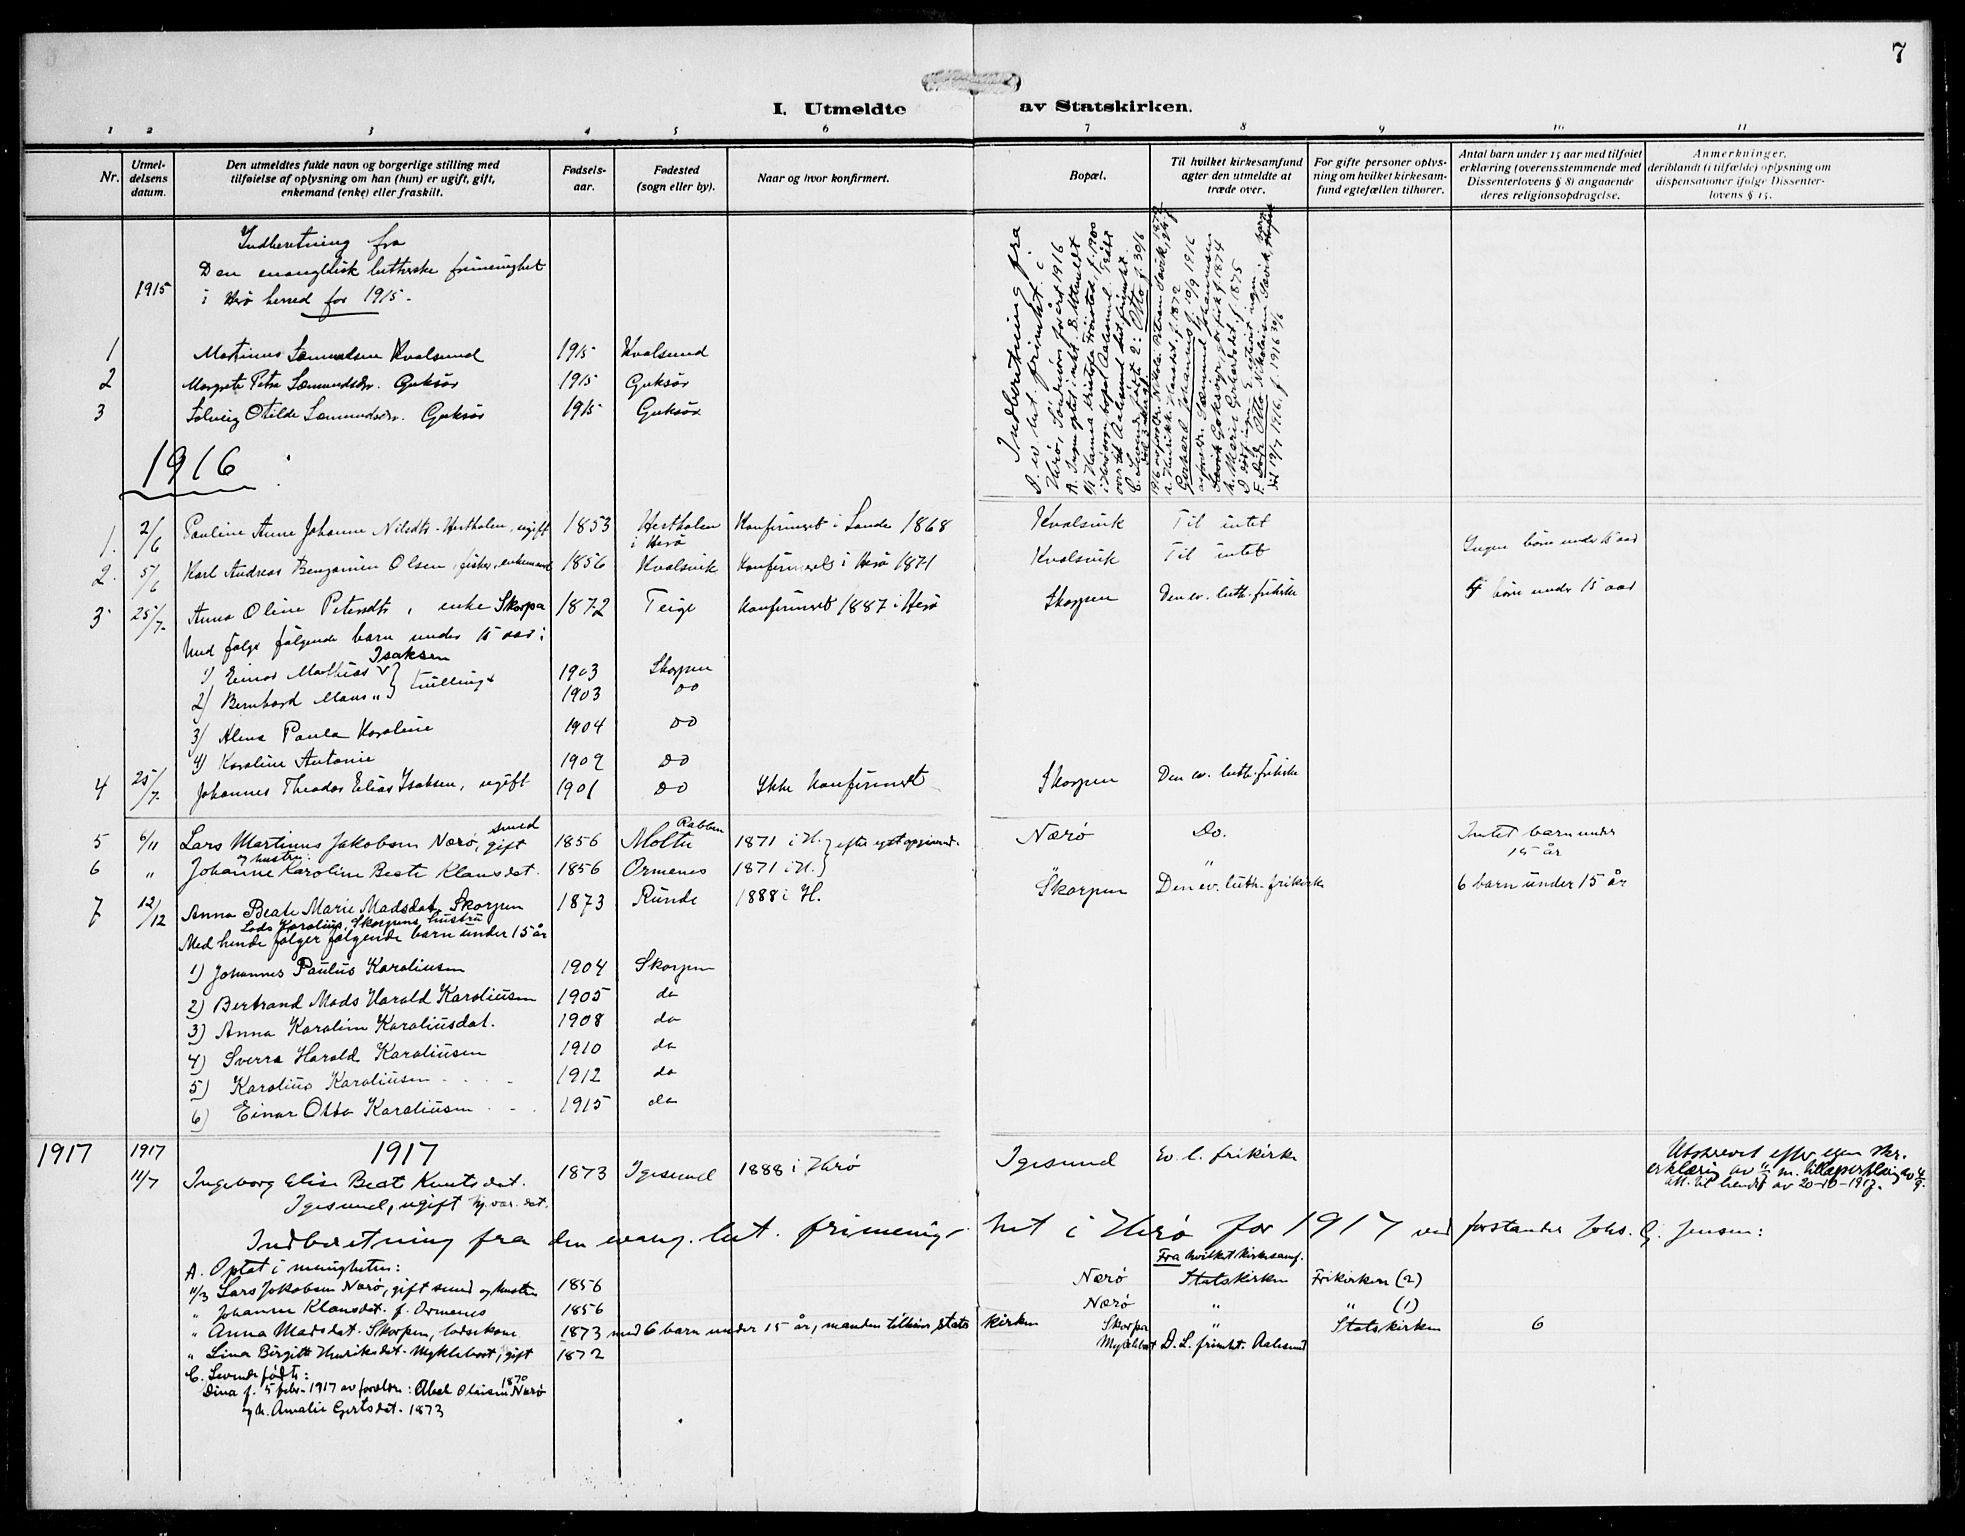 7
I. Utmeldte av Statskirken.
1 2 3 4 5 6 7 8 9 10 11
Nr.
Utmel-
delsens
datum.
Den utmeldtes fulde navn og borgerlige stilling med
tilføielse af oplysning om han (hun) er ugift, gift,
enkemand (enke) eller fraskilt.
Fødsels-
aar.
Fødested
(sogn eller by).
Naar og hvor konfirmert.
Bopæl.
Til hvilket kirkesamfund
agter den utmeldte at
træde over.
For gifte personer oplys-
ning om hvilket kirkesam-
fund egtefællen tilhører.
Antal barn under 15 aar med tilføiet
erklæring (overensstemmende med
Dissenterlovens § 8) angaaende
deres religionsopdragelse.
Anmerkninger,
deriblandt (i tilfælde) oplysning om
dispensationer ifølge Dissenter-
lovens § 15.
Indberetning fra
Den evanglisk lutherske frimenighet
1915 i Herö herred for 1915.
1 Martinus Sæmundsen Kvalsund 1915 Kvalsund
2 Margrete Petra Sæmundsdr. Goksör 1915 Goksör
3 Solveig Otilde Sæmundsdr. Goksör 1915 Goksör
Indberetning fra
D. ev. lut. frimht. i
Herö, Söndmör for året 1916
1916
1. 2/6 Pauline Anne Johanne Nilsdtr. Hestholen, ugift 1853 Hestholen i Herö Konfirmert i Sande 1868 Kvalsvik Til intet
2. 5/6 Karl Andreas Benjamin Olsen, fisker, enkemand 1856 Kvalsvik Konfirmert i Herö 1871 Kvalsvik Til intet Ingen börn under 15 aar
3 25/7 Anna Oline Petersdtr, enke Skorpa 1872 Teige Konfirmert 1887 i Herö Skorpen Den ev. luth. frikirke 4 börn under 15 aar
Med følge følgende barn under 15 aar:
1) Einar Mathias Isaksen 1903 Skorpen
2) Bernhard Mons " } tvillinger 1903 do
3) Alma Paula Karoline 1904 do
4) Karoline Antonie 1909 do
4 25/7 Johannes Theodor Elias Isaksen, ugift 1901 do Ikke konfirmert Skorpen Den ev. luth. frikirke
5 6/11 Lars Martinus Jakobsen Nærø, smed gift 1856 Moltu Rabben 1871 i H. Nærø Do. Intet barn under
15 år
6 " og hustru: Johanne Karoline Beate Klausdat. 1856 Ormenes 1871 i H. " "
7 12/12 Anna Beate Marie Madsdat. Skorpen 1873 Runde 1888 i H. Skorpen Den ev. luth. frikirke 6 barn under 15 år
Lods Karolius Skorpens hustru
Med hende følger følgende barn under 15 år
1) Johannes Paulus Karoliusen 1904 Skorpen
2) Bertrand Mads Harald Karoliusen 1905 do
3) Anna Karoline Karoliusdat. 1908 do
4) Sverre Harald Karoliusen 1910 do
5) Karolius Karoliusen 1912 do
6) Einar Otto Karoliusen 1915 do
1917 1917 1917
11/7 Ingeborg Elise Beat Knutsdat. 1873 Igesund 1888 i Herø Igesund Ev. l. frikirke Utskrevet efter egen skr.
erklæring av
Igesund, ugift
Indberetning fra den evang. lut. frimenighet i Herø for 1917 ved forstander Johs. G. Jensen:
A. Optat i menigheten: Fra hvilket kirkesamf.
11/3 Lars Jakobsen Nærø, gift smed og hustru 1856 Nærø Statskirken Frikirken (2)
" Johanne Klausdat. f. Ormenes 1856 Nærø " " (1)
" Anna Madsdat. Skorpen, lodsekone 1873 med 6 barn under 15 år, manden tilhører statskirken Skorpa " Statskirken 6
" Lina Birgitte Henriksdat. Myklebost, gift 1872 Myklebost D. L. frimht. Aalesund
C. Levende fødte:
Dina f. 5 febr. 1917 av foreldre: Abel Olaisen Nærø 1870
og h. Amalie Gertsdat. 1873